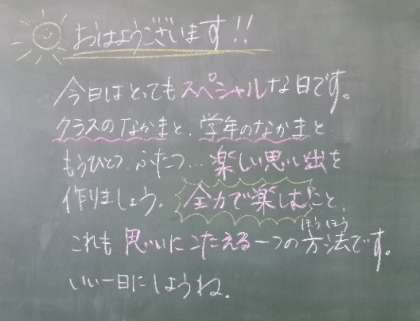 おはようございます!!
今日はとってもスペシャルな日です。
クラスのなかまと、学年のなかまと
もうひとつ、ふたつ…楽しい思い出を
作りましょう。全力で楽しむこと、
ほうほう
これも思いにこたえる一つの方法です。
いい一日にしようね。